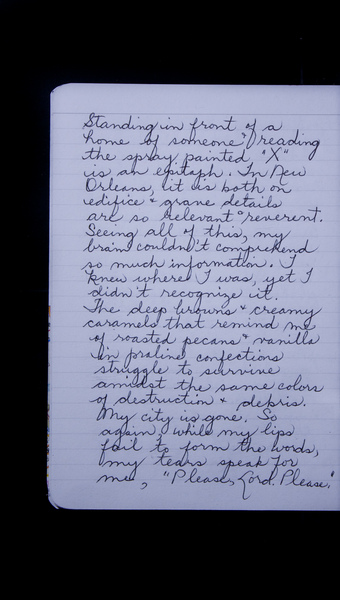 Standing in front of a
home of someone & reading
the spray painted "X"
is an epitaph. In New
Orleans, it is both on
edifice & grave details
are so relevant & reverent.
Seeing all of this, my
brain couldn't comprehend
so much information. I
knew where I was, yet I
didn't recognize it.
The deep browns & creamy
caramels that remind me
of roasted pecans & vanilla
in praline confections
struggle to survive
amidst the same colors
of destruction & debris.
My city is gone. So
again, while my lips
fail to form the words,
my tears speak for
me, "Please, Lord. Please."